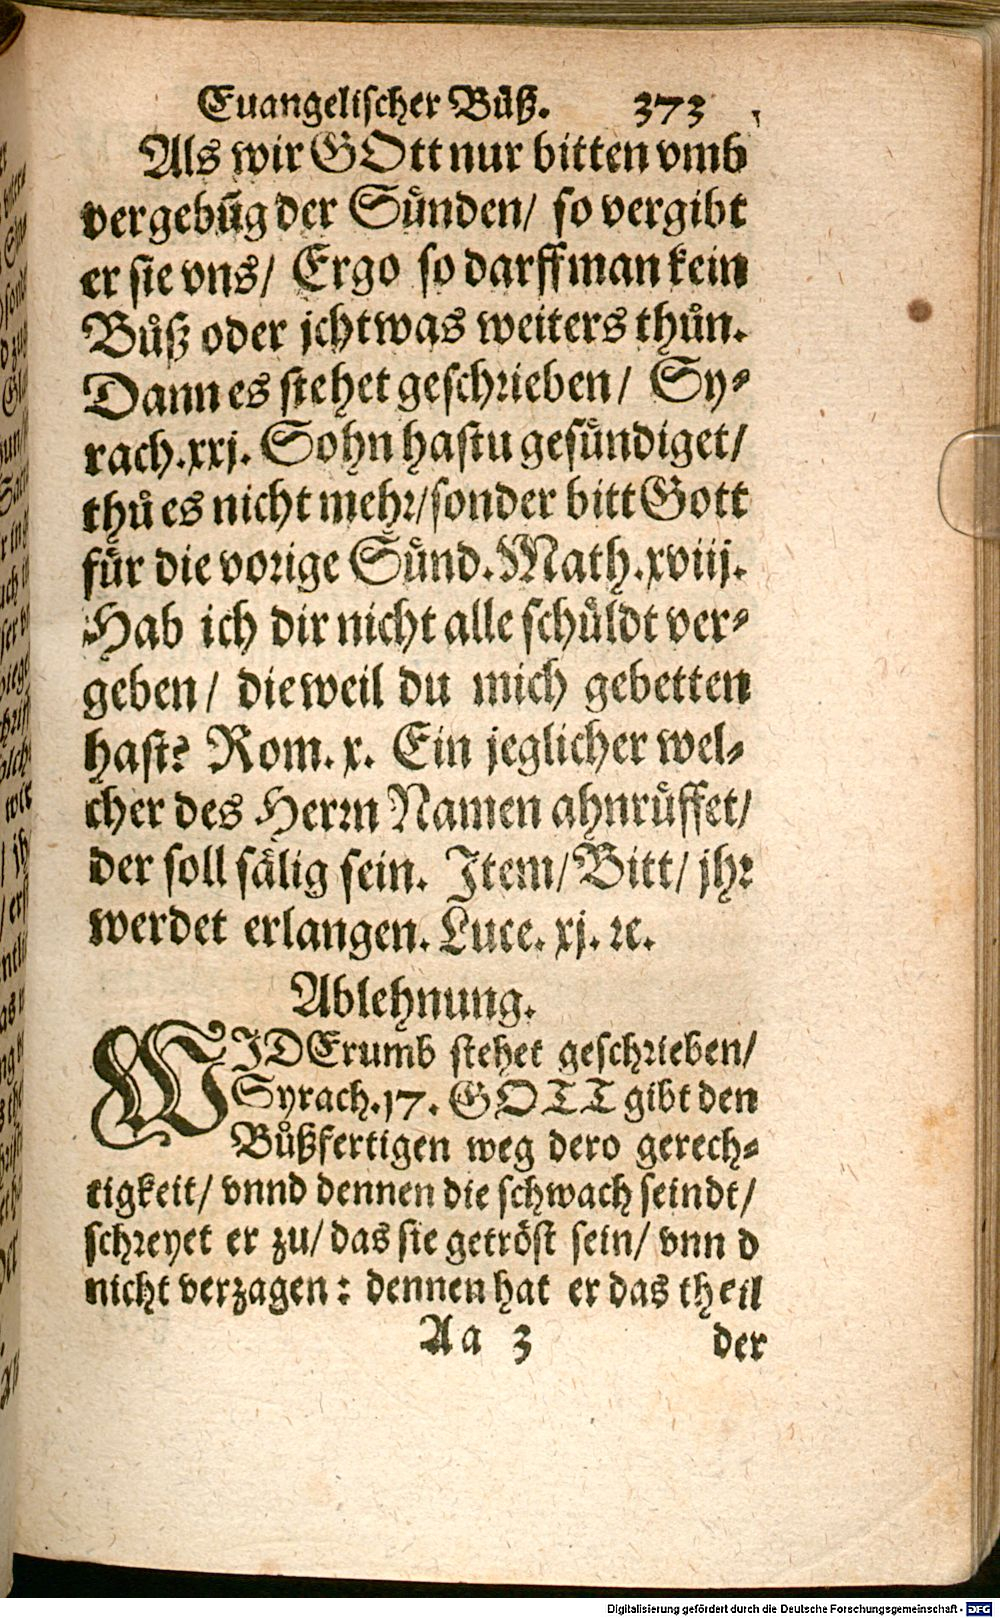 Euangelischer Bůß. 373
Als wir GOtt nur bitten vmb
vergebũg der Sünden/ so vergibt
er sie vns/ Ergo so darff man kein
Bůß oder jchtwas weiters thůn.
Dann es stehet geschrieben/ Sy⸗
rach.xxj. Sohn hastu gesündiget/
thů es nicht mehr/sonder bitt Gott
für die vorige Sünd. Math.xviij.
Hab ich dir nicht alle schůldt ver⸗
geben/ dieweil du mich gebetten
hast? Rom. x. Ein jeglicher wel⸗
cher des Herrn Namen ahnrůffet/
der soll sälig sein. Item/Bitt/ jhr
werdet erlangen. Luce. xj. ꝛc.
Ablehnung.
WIDErumb stehet geschrieben/
Syrach.17. GOTT gibt den
Bůßfertigen weg dero gerech⸗
tigkeit/ vnnd dennen die schwach seindt/
schreyet er zu/ das sie getröst sein/ vnn d
nicht verzagen: dennen hat er das theil
Aa 3 der
Digitalisierung gefördert durch die Deutsche Forschungsgemeinschaft - DFG